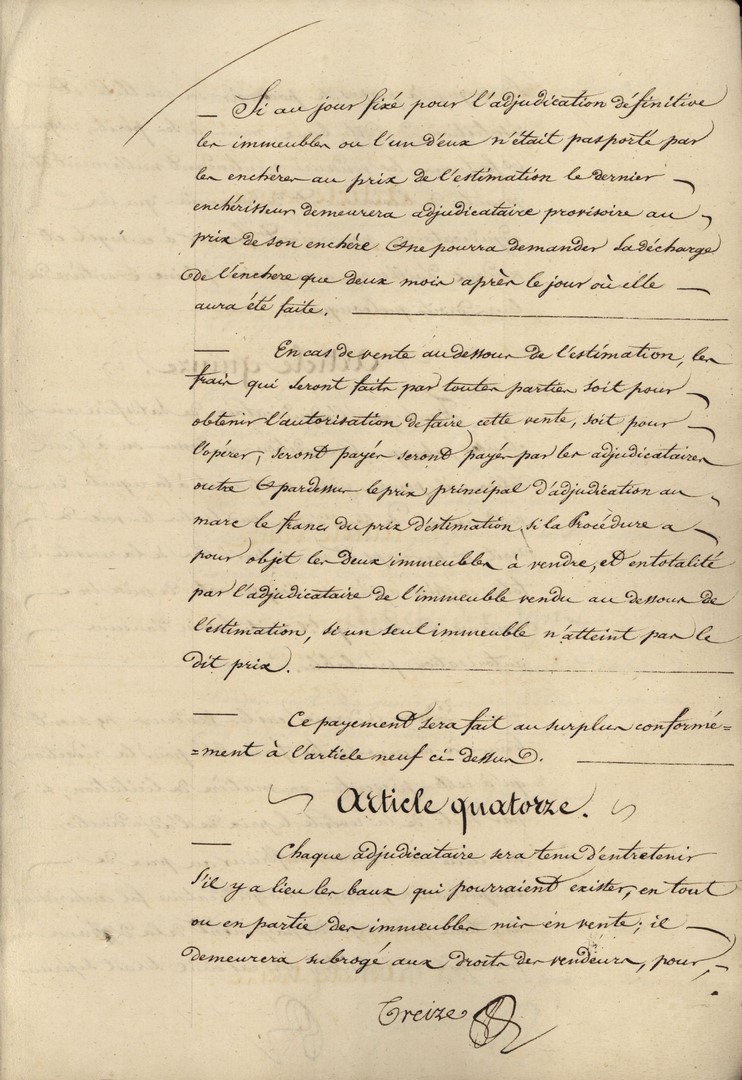 Si au jour fixé pour l'adjudication définitive
les immeubles ou l'un d'eux n'était pas porté par
les enchères au prix de l'estimation le dernier
enchérisseur demeurera adjudicataire provisoire au
prix de son enchère & ne pourra demander la décharge
de l'enchere que deux mois après le jour où elle
aura été faite.
En cas de vente au dessous de l'estimation, les
frais qui seront faits par toutes parties soit pour
obtenir l'autorisation de faire cette vente, soit pour
l'opérer, seront payés seront payés par les adjudicataires
outre & pardessus le prix principal d'adjudication au
marc le franc du prix d'estimation, si la Procédure a
pour objet les deux immeubles à vendre, et en totalité
par l'adjudicataire de l'immeuble vendu au dessous de
l'estimation, si un seul immeuble n'atteint pas le
dit prix.
Ce payement sera fait au surplus conformé=
=ment à l'article neuf ci-dessus.
Article quatorze.
Chaque adjudicataire sera tenu d'entretenir
s'il y a lieu les baux qui pourraient exister, en tout
ou en partie des immeubles mis en vente; il
demeurera subrogé aux droits des vendeurs, pour,
Treize